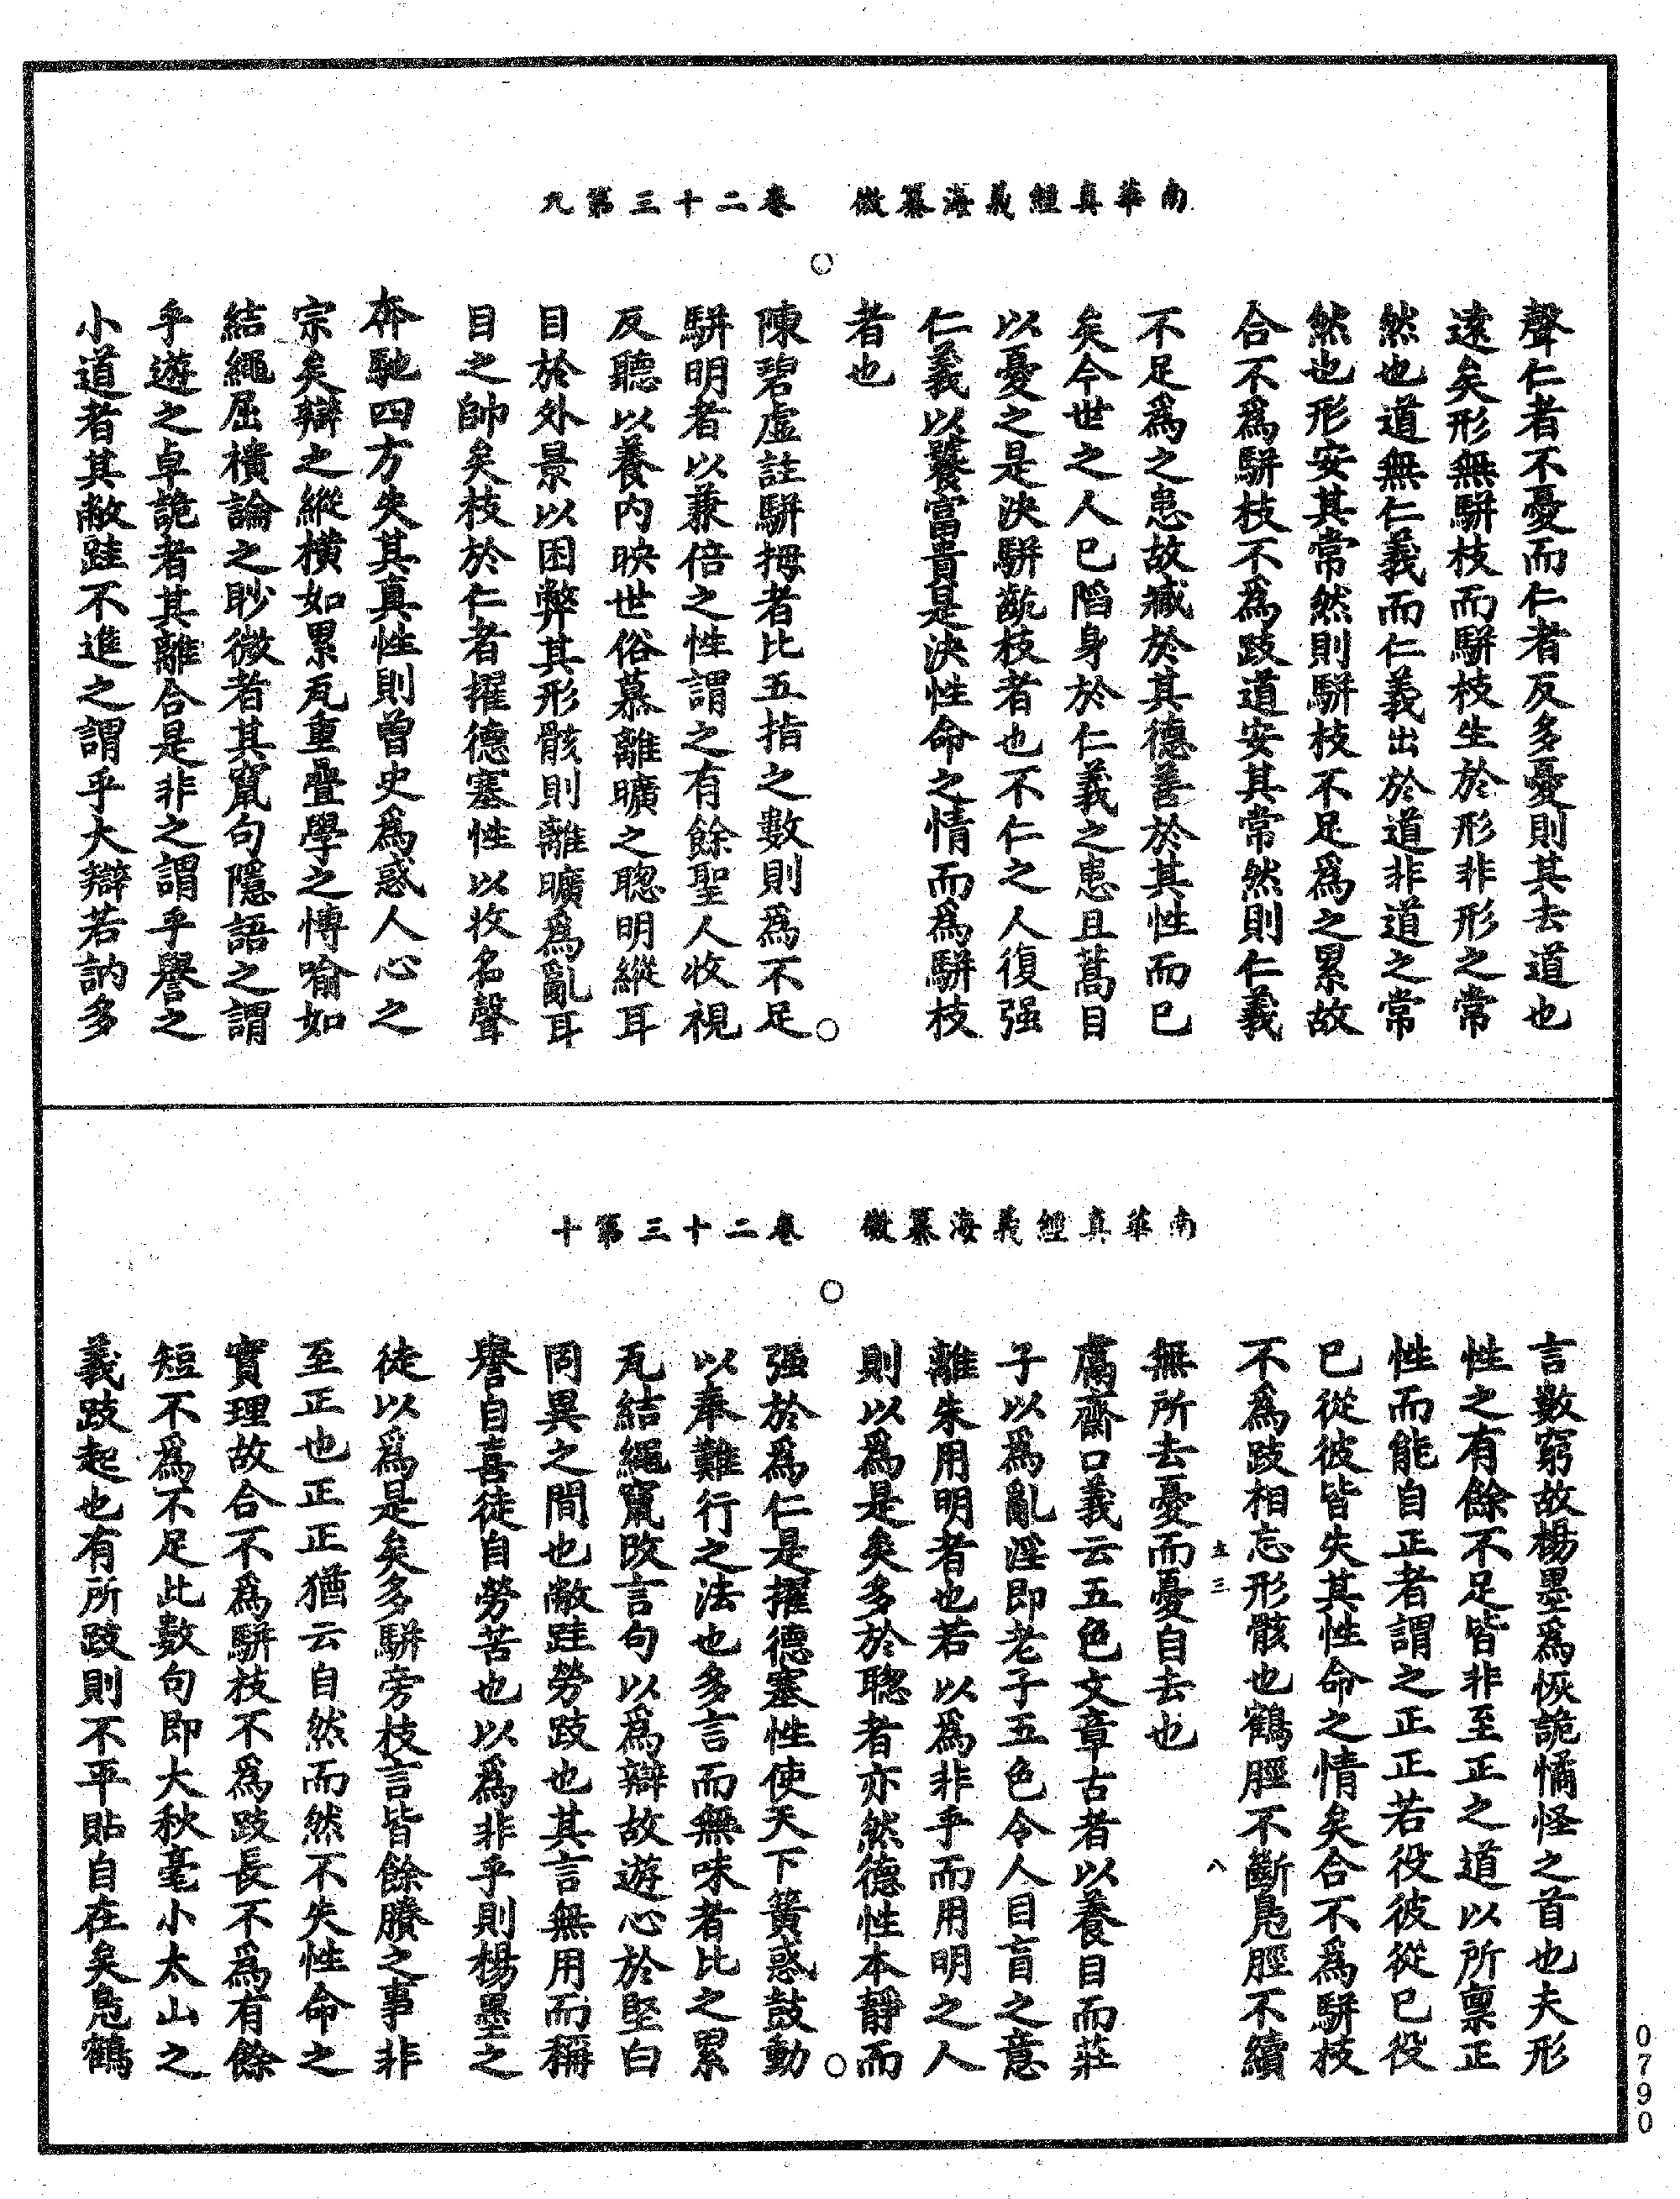 南華真經義海纂微　卷二十三第九
聲仁者不憂而仁者反多憂則其去道也
遠矣形無駢枝而駢枝生於形非形之常
然也道無仁義而仁義出於道非道之常
然也形安其常然則駢枝不足爲之累故
合不爲駢枝不爲跂道安其常然則仁義
不足爲之患故臧於其德善於其性而已
矣今世之人已陷身於仁義之患且蒿目
以憂之是決駢齕枝者也不仁之人復强
仁義以饕富貴是決性命之情而爲駢枝
者也
陳碧虛註駢拇者比五指之數則爲不足
駢明者以兼倍之性謂之有餘聖人收視
反聽以養內映世俗慕離曠之聰明縱耳
目於外景以困弊其形骸則離曠爲亂耳
目之帥矣枝於仁者擢德塞性以收名聲
奔馳四方失其真性則曾史爲惑人心之
宗矣辯之縱橫如累瓦重疊學之博喻如
結繩屈樻論之眇微者其竄句隱語之謂
乎遊之卓詭者其離合是非之謂乎譽之
小道者其敝跬不進之謂乎大辯若訥多
南華真經義海纂微　卷二十三第十
言數窮故楊墨爲恢詭憰怪之首也夫形
性之有餘不足皆非至正之道以所稟正
性而能自正者謂之正正若役彼從已役
已從彼皆失其性命之情矣合不爲駢枝
不爲跂相忘形骸也鶴脛不斷鳧脛不續
無所去憂而憂自去也
鬳齋口義云五色文章古者以養目而莊
子以爲亂淫即老子五色令人目盲之意
離朱用明者也若以爲非乎而用明之人
則以爲是矣多於聰者亦然德性本靜而
强於爲仁是擢德塞性使天下簧惑鼓動
以奉難行之法也多言而無味者比之累
瓦結繩竄改言句以爲辯故遊心於堅白
同異之間也敝跬勞跂也其言無用而稱
譽自喜徒自勞苦也以爲非乎則楊墨之
徒以爲是矣多駢旁枝言皆餘賸之事非
至正也正正猶云自然而然不失性命之
實理故合不爲駢枝不爲跂長不爲有餘
短不爲不足此數句即大秋毫小太山之
義跂起也有所跂則不平貼自在矣鳧鶴
八
0790